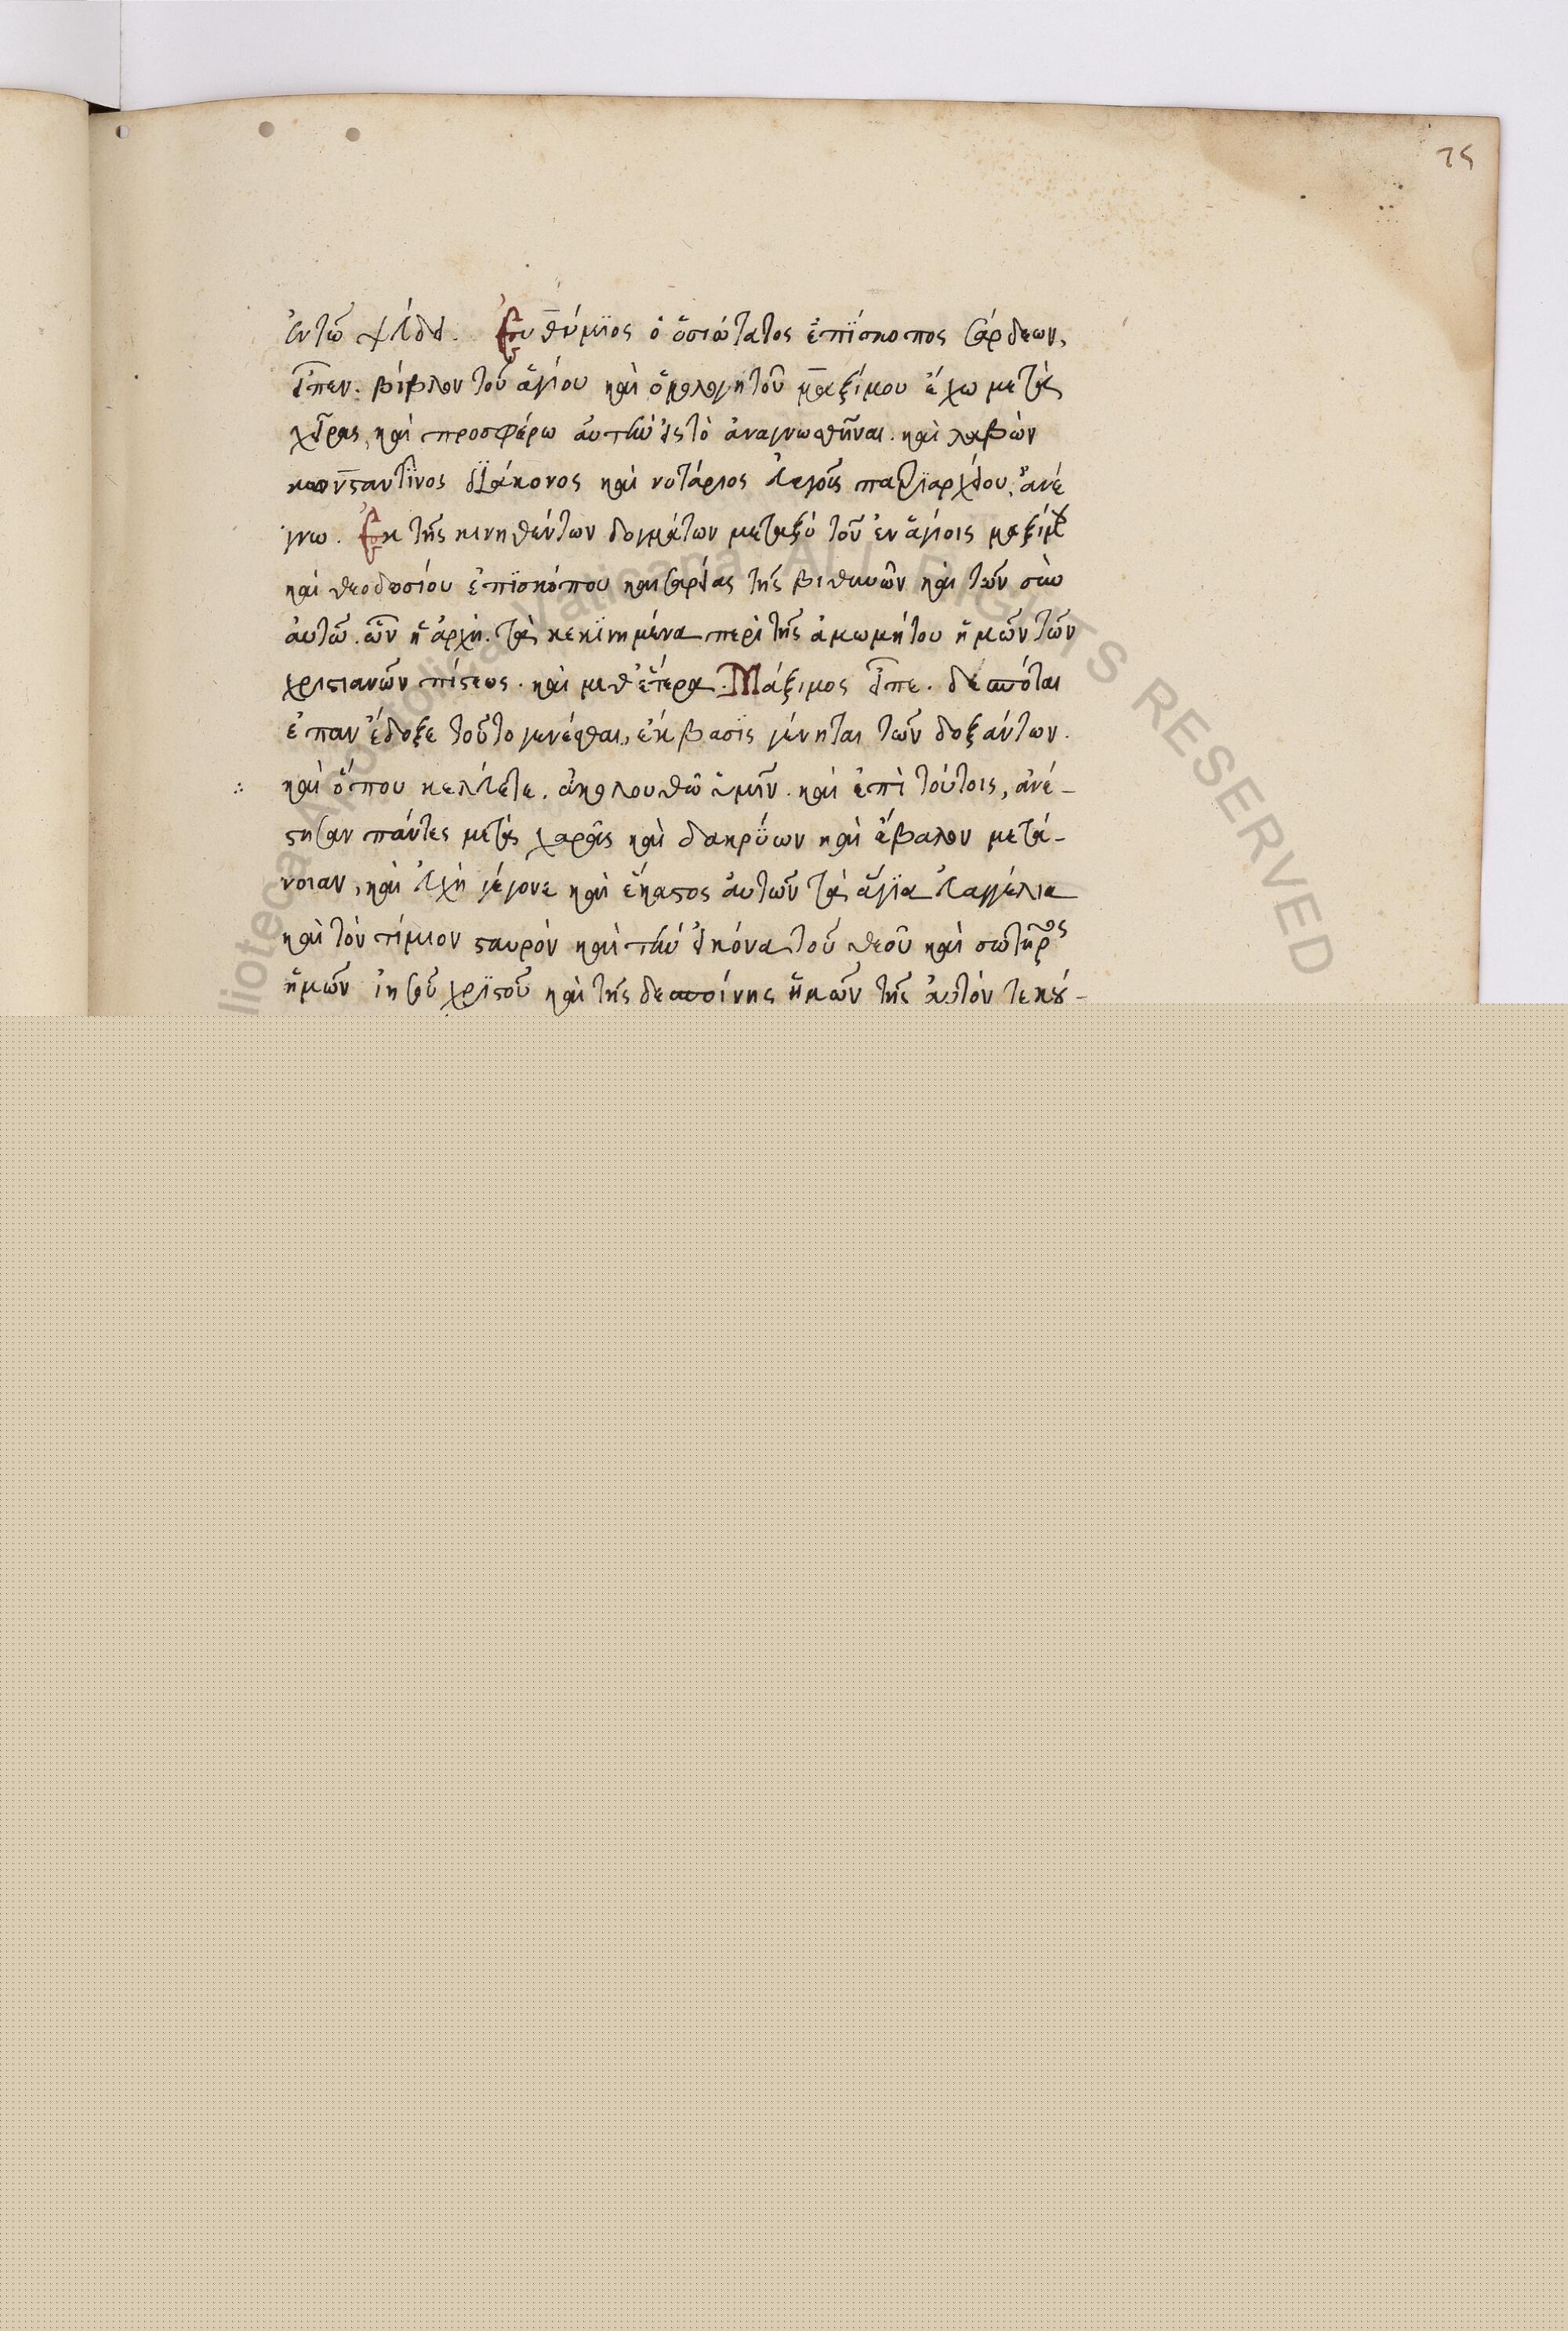 75
ἐν τῷ ψεύδει. Εὐθύμιος ὁ ὁσιώτατος ἐπίσκοπος σάρδεων,
εἶπεν. βίβλον τοῦ ἁγίου καὶ ὁμολογητοῦ μαξίμου ἔχω μετὰ
χεῖρας, καὶ προσφέρω αὐτὴν εἰς τὸ ἀναγνωσθῆναι. καὶ λαβὼν
κωνσταντῖνος διάκονος καὶ νοτάριος εὐαγοῦς πατριαρχείου, ἀνέ
γνω. Ἐκ τῆς κινηθέντων δογμάτων μεταξὺ τοῦ ἐν ἁγίοις μαξίμου
καὶ θεοδοσίου ἐπισκόπου καισαρείας τῆς βιθυνῶν καὶ τῶν σὺν
αὐτῷ. ὧν ἡ ἀρχή. τὰ κεκινημένα περὶ τῆς ἀμωμήτου ἡμῶν τῶν
χριστιανῶν πίστεως. καὶ μεθ' ἕτερα. Μάξιμος εἶπε. δεσπόται
ἐπὰν ἔδοξε τοῦτο γενέσθαι, ἔκβασις γένηται τῶν δοξάντων.
καὶ ὅπου κελεύετε. ἀκολουθῶ ὑμῖν. καὶ ἐπὶ τούτοις, ἀνέ-
στησαν πάντες μετὰ χαρᾶς καὶ δακρύων καὶ ἔβαλον μετά-
νοιαν, καὶ εὐχὴ γέγονε καὶ ἕκαστος αὐτῶν τὰ ἅγια εὐαγγέλια
καὶ τὸν τίμιον σταυρὸν καὶ τὴν εἰκόνα τοῦ θεοῦ καὶ σωτῆρος
ἡμῶν ἰησοῦ χριστοῦ καὶ τῆς δεσποίνης ἡμῶν τῆς αὐτὸν τεκού-
ALL RIGHTS RESERVED